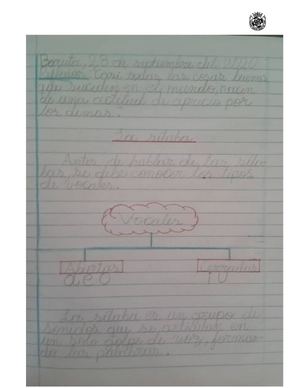 Bogotá, 28 de septiembre del 2022
Casi todas las cosas buenas
que suceden en el mundo, nacen
de una actitud de aprecio por
los demás.
La sílaba
Antes de hablar de las síla-
bas, se debe conocer los tipos
de vocales.
Vocales
Abiertas
Cerradas
a e o
i u
Las sílaba es un grupo de
sonidos que se articulan en
un solo golpe de voz, forman-
do las palabras.